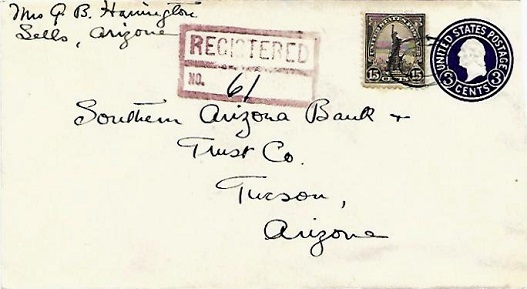 Mrs G B Harrington
Sells, Arizona
REGISTERED
NO. 61
15 15
UNITED STATES POSTAGE
3 CENTS 3
Southern Arizona Bank &
Trust Co.
Tucson,
Arizona